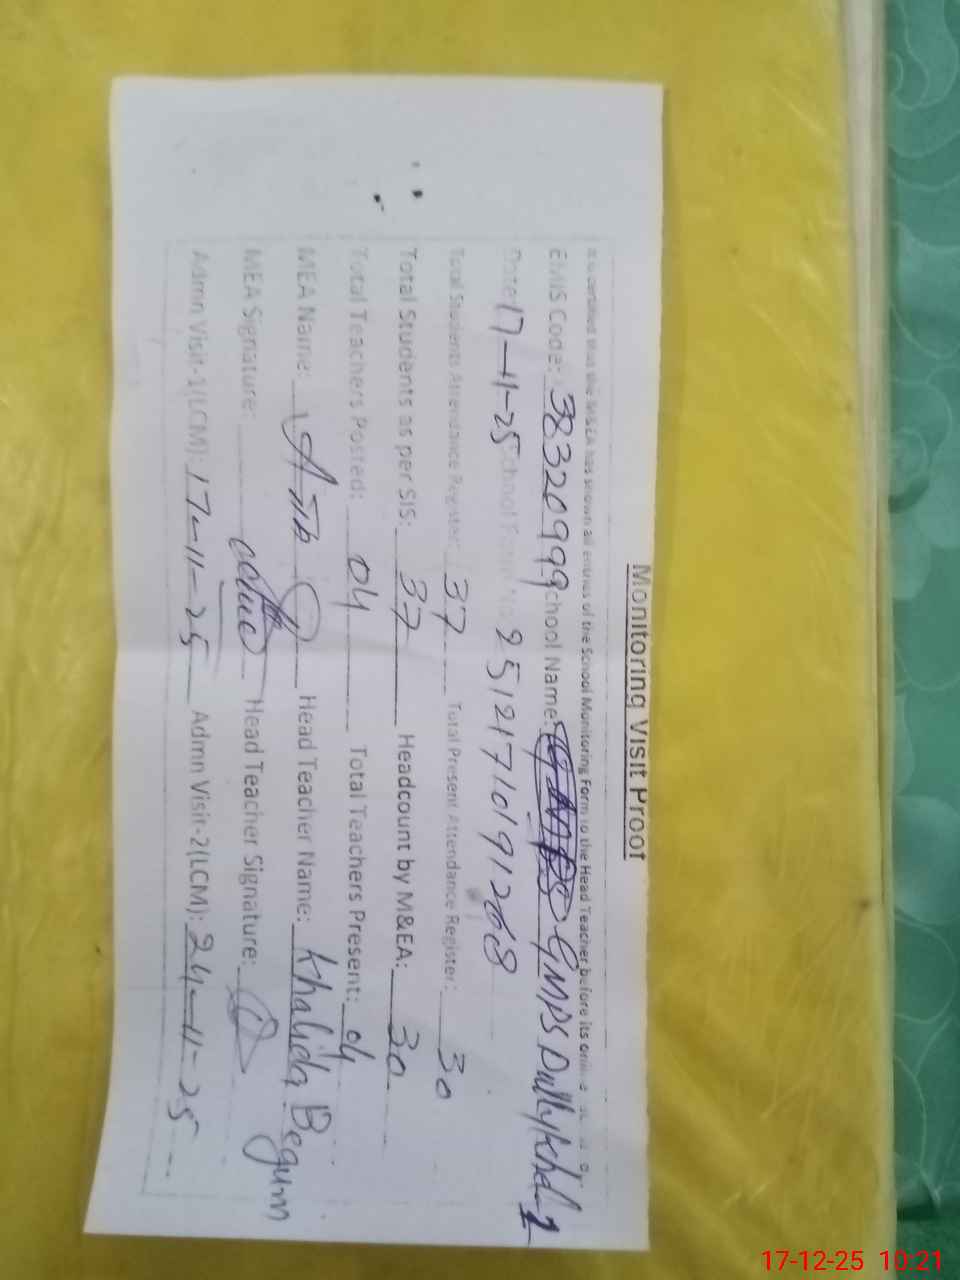 Monitoring Visit Proof
It is certified that the M&EA has shown all entries of the School Monitoring Form to the Head Teacher before its
EMIS Code: 38320999 School Name: GMPS
Date: 17-11-25 School Form No: 251217101912668
Total Students Attendance Register: 37 Total Present Attendance Register: 30
Total Students as per SIS: 37 Headcount by M&EA: 30
Total Teachers Posted: 04 Total Teachers Present: 04
MEA Name: Head Teacher Name: Khalida Begum
MEA Signature: Head Teacher Signature:
Admn Visit-1(LCM): 17-11-25 Admn Visit-2(LCM): 24-11-25
17-12-25 10:21